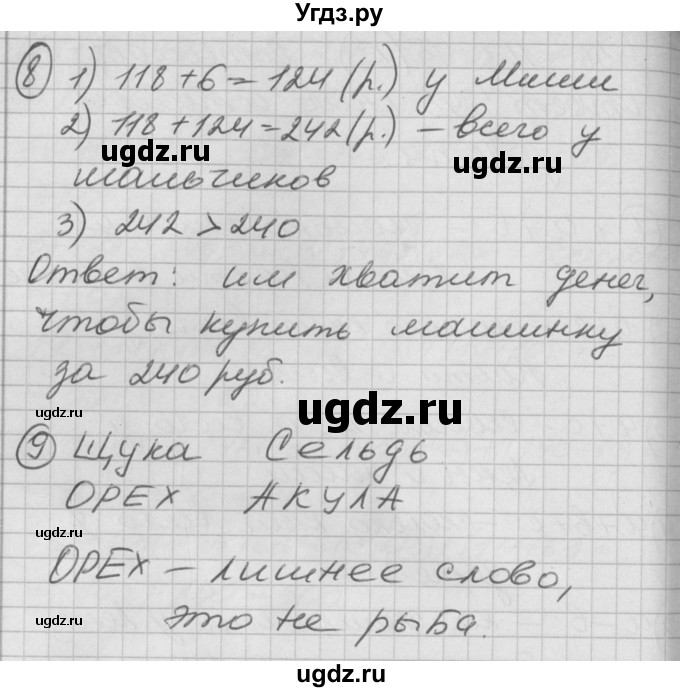 Угдз.ру
8 1) 118 + 6 = 124 (р.) у Миши
2) 118 + 124 = 242 (р.) – всего у
ugdz.ru ugdz.ru
мальчиков
3) 242 > 240
Ответ: им хватит денег,
чтобы купить машинку
за 240 руб.
ugdz.ru ugdz.ru
9 Щука Сельдь
ОРЕХ АКУЛА
ugdz.ru
ОРЕХ – лишнее слово,
ugdz.ru
это не рыба.
ugdz.ru